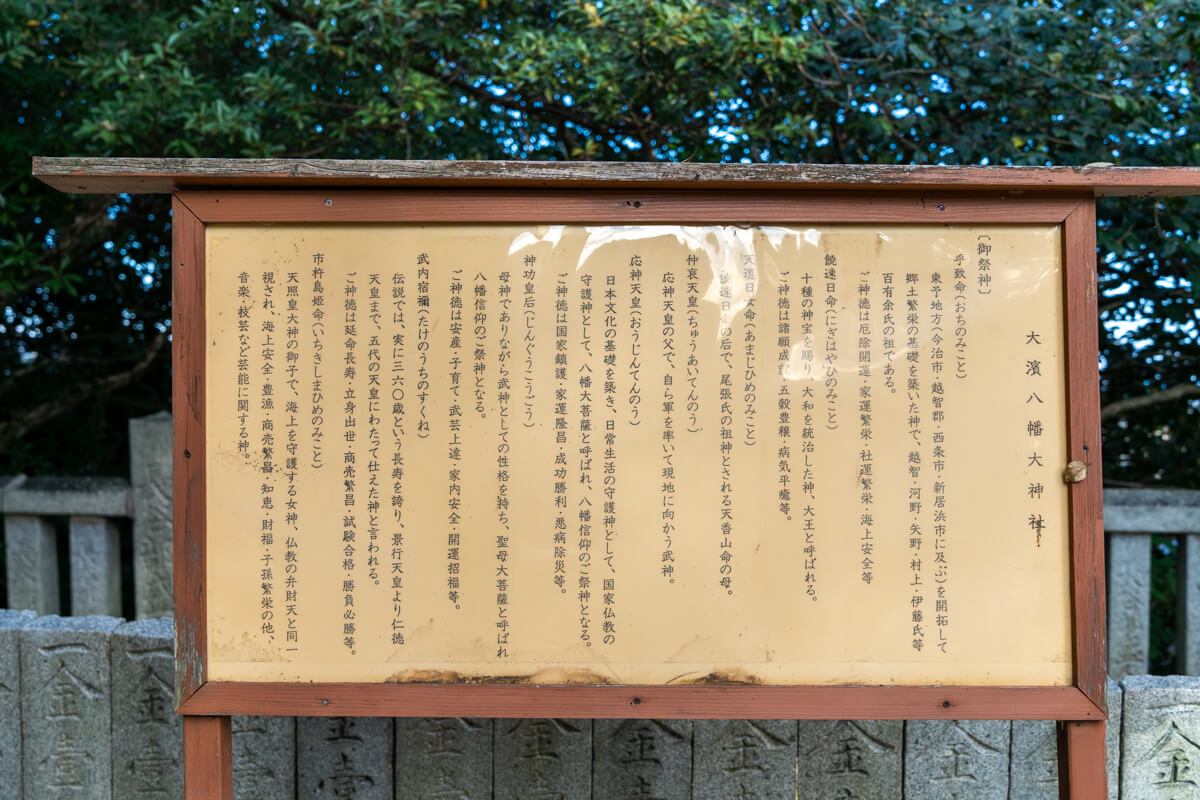 大濱八幡大神社
〔御祭神〕
乎致命(おちのみこと)
東予地方(今治市・越智郡・西条市・新居浜市に及ぶ)を開拓して
郷土繁栄の基礎を築いた神で、越智・河野・矢野・村上・伊藤氏等
百有余氏の祖である。
ご神徳は厄除開運・家運繁栄・社運繁栄・海上安全等
饒速日命(にぎはやひのみこと)
十種の神宝を賜り、大和を統治した神、大王と呼ばれる。
ご神徳は諸願成就・五穀豊穣・病気平癒等。
天道日女命(あまじひめのみこと)
饒速日命の后で、尾張氏の祖神とされる天香山命の母。
仲哀天皇(ちゅうあいてんのう)
応神天皇の父で、自ら軍を率いて現地に向かう武神。
応神天皇(おうじんてんのう)
日本文化の基礎を築き、日常生活の守護神として、国家仏教の
守護神として、八幡大菩薩と呼ばれ、八幡信仰のご祭神となる。
ご神徳は国家鎮護・家運隆昌・成功勝利・悪病除災等。
神功皇后(じんぐうこうごう)
母神でありながら武神としての性格を持ち、聖母大菩薩と呼ばれ
八幡信仰のご祭神となる。
ご神徳は安産・子育て・武芸上達・家内安全・開運招福等。
武内宿禰(たけのうちのすくね)
伝説では、実に三六〇歳という長寿を誇り、景行天皇より仁徳
天皇まで、五代の天皇にわたって仕えた神と言われる。
ご神徳は延命長寿・立身出世・商売繁昌・試験合格・勝負必勝等。
市杵島姫命(いちきしまひめのみこと)
天照皇大神の御子で、海上を守護する女神、仏教の弁財天と同一
視され、海上安全・豊漁・商売繁昌・知恵・財福・子孫繁栄の他、
音楽・技芸など芸能に関する神。
一金壹
一金壹
金壹
金
金
金
金
金
金
一金